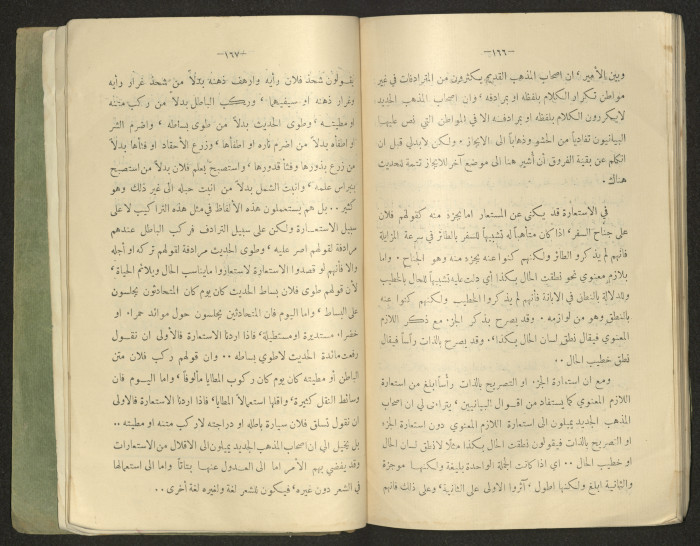 —١٦٦—
وبين الأمير، ان اصحاب المذهب القديم يستكثرون من المترادفات في غير
مواطن تكرار الكلام بلفظه او بمرادفه، وان اصحاب المذهب الجديد
لايكررون الكلام بلفظه او بمرادفه الا في المواطن التي نص عليها
البيانيون تفادياً من الحشو وذهاباً الى الايجاز. ولكن لابد لي قبل ان
اتكلم عن بقية الفروق أن أشير هنا الى موضع آخر للايجاز تتمة للحديث
هناك.
في الاستعارة قد يكنى عن المستعار اما بجزء منه كقولهم فلان
على جناح السفر، اذا كان متأهباً له تشبيهاً للسفر بالطائر في سرعة المزايلة
فانهم لم يذكروا الطائر ولكنهم كنوا عنه بجزء منه وهو الجناح. واما
بلازم معنوي نحو نطقت الحال بكذا أي دلت عليه تشبيهاً للحال بالخطيب
وللدلالة بالنطق في الابانة فانهم لم يذكروا الخطيب ولكنهم كنوا عنه
بالنطق وهو من لوازمه. وقد يصرح بذكر الجزء مع ذكر اللازم
المعنوي فيقال نطق لسان الحال بكذا، وقد يصرح بالذات رأساً فيقال
نطق خطيب الحال..
ومع ان استعارة الجزء او التصريح بالذات رأساً ابلغ من استعارة
اللازم المعنوي كما يستفاد من اقوال البيانيين، يتراءى لي ان اصحاب
المذهب الجديد يميلون الى استعارة اللازم المعنوي دون استعارة الجزء
او التصريح بالذات فيقولون نطقت الحال بكذا مثلا لا نطق لسان الحال
او خطيب الحال.. اي اذا كانت الجملة الواحدة بليغة ولكنها موجزة
والثانية ابلغ ولكنها اطول، آثروا الاولى على الثانية، وعلى ذلك فانهم
—١٦٧—
يقولون شحذ فلان رأيه وارهف ذهنه بدلاً من شحذ غرار رأيه
وغرار ذهنه او سيفيهما، وركب الباطل بدلا من ركب متنه
او مطيته، وطوى الحديث بدلاً من طوى بساطه، واضرم الشر
او اطفأه بدلاً من اضرم ناره او اطفأها، وزرع الأحقاد او فثأها بدلاً
من زرع بذورها وفثأ قدورها، واستصبح بعلم فلان بدلا من استصبح
بنبراس علمه، وانبت الشمل بدلاً من انبت حبله الى غير ذلك وهو
كثير.. بل هم يستعملون هذه الألفاظ في مثل هذه التراكيب لا على
سبيل الاستعارة ولكن على سبيل الترادف فركب الباطل عندهم
مرادفة لقولهم اصر عليه، وطوى الحديث مرادفة لقولهم تركه او أجله
والا فانهم لو قصدوا الاستعارة لاستعاروا مايناسب الحال ويلائم الحياة،
لأن قولهم طوى فلان بساط الحديث كان يوم كان المتحادثون يجلسون
على البساط، واما اليوم فان المتحادثين يجلسون حول موائد حمراء او
خضراء مستديرة اومستطيلة، فاذا اردنا الاستعارة فالأولى ان نقول
رفعت مائدة الحديث لاطوي بساطه.. وان قولهم ركب فلان متن
الباطل أو مطيته كان يوم كان ركوب المطايا مألوفاً، واما اليوم فان
وسائط النقل كثيرة، واقلها استعمالاً المطايا، فاذا اردنا الاستعارة فالأولى
ان نقول تسلق فلان سيارة باطله او دراجته لاركب متنه او مطيته..
بل يخيل الي ان اصحاب المذهب الجديد يميلون الى الاقلال من الاستعارات
وقد يفضي بهم الأمر اما الى العدول عنها بتاتاً واما الى استعمالها
في الشعر دون غيره، فيكون للشعر لغة ولغيره لغة أخرى..